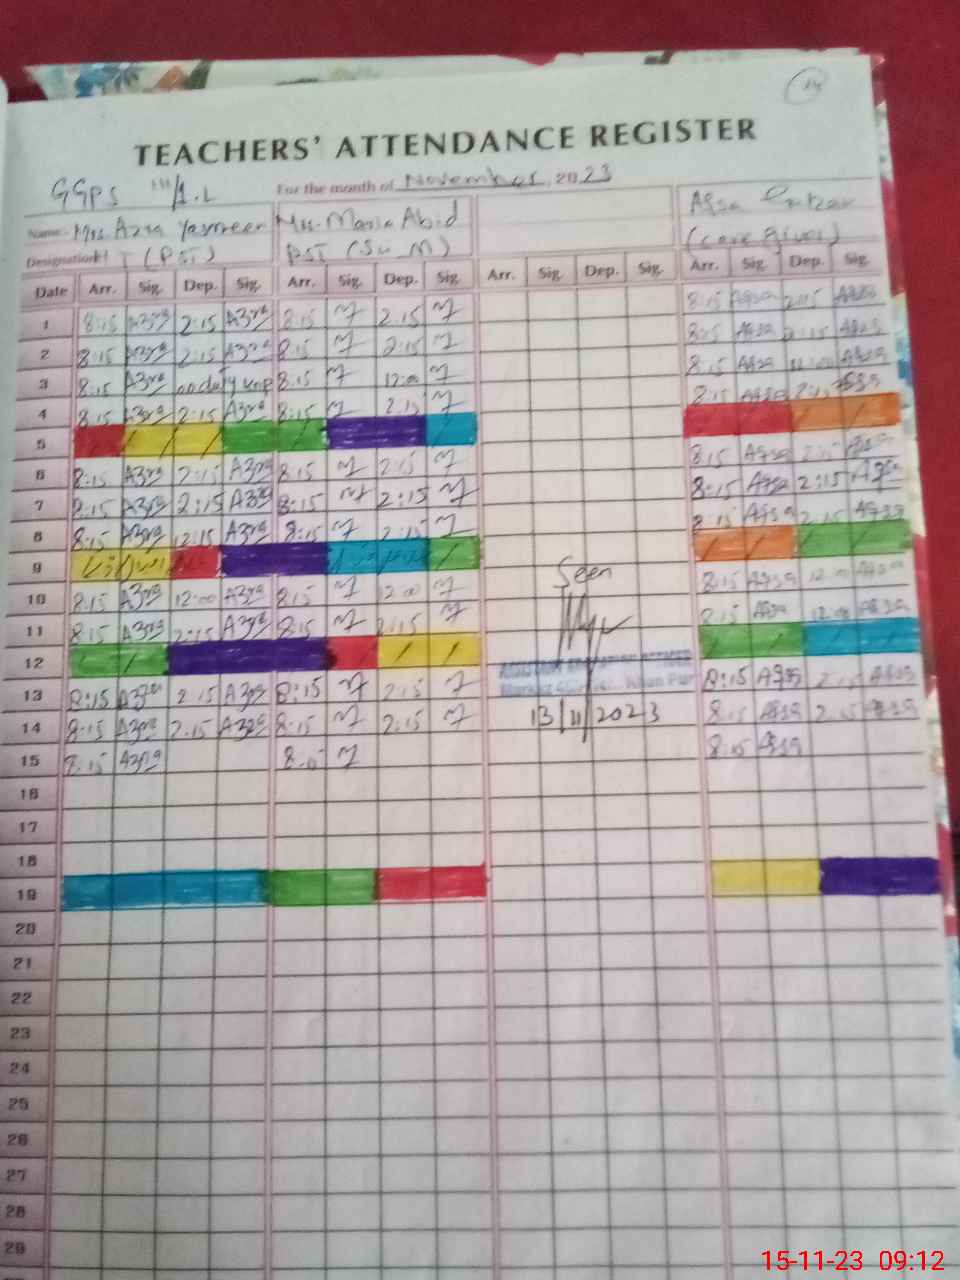 TEACHERS' ATTENDANCE REGISTER
GGPS 111/1.L
For the month of November, 2023
Name:- Mrs. Azra Yasmeen Mrs. Maria Abid Aqsa
Designation (PST) PST (Sc_M) (care giver)
Date Arr. Sig. Dep. Sig. Arr. Sig. Dep. Sig. Arr. Sig. Dep. Sig. Arr. Sig. Dep. Sig.
1 8:15 Azra 2:15 Azra 8:15 M 2:15 M 8:15 Aqsa 2:15 Aqsa
2 8:15 Azra 2:15 Azra 8:15 M 2:15 M 8:15 Aqsa 2:15 Aqsa
3 8:15 Azra 8:15 M 12:00 M 8:15 Aqsa 12:00 Aqsa
4 8:15 Azra 2:15 Azra 8:15 M 2:15 M 8:15 Aqsa 2:15 Aqsa
5
6 8:15 Azra 2:15 Azra 8:15 M 2:15 M 8:15 Aqsa 2:15 Aqsa
7 8:15 Azra 2:15 Azra 8:15 M 2:15 M 8:15 Aqsa 2:15 Aqsa
8 8:15 Azra 2:15 Azra 8:15 M 2:15 M 8:15 Aqsa 2:15 Aqsa
9
Seen
10 8:15 Azra 12:00 Azra 8:15 M 12:00 M 8:15 Aqsa 12:00 Aqsa
11 8:15 Azra 2:15 Azra 8:15 M 2:15 M 8:15 Aqsa 12:00 Aqsa
12
ASSISTANT EDUCATION OFFICER
Markaz Khan Pur
13 8:15 Azra 2:15 Azra 8:15 M 2:15 M 8:15 Aqsa 2:15 Aqsa
14 8:15 Azra 2:15 Azra 8:15 M 2:15 M 13/11/2023 8:15 Aqsa 2:15 Aqsa
15 8:15 Azra M 8:15 Aqsa
16
17
18
19
20
21
22
23
24
25
26
27
28
29
15-11-23 09:12